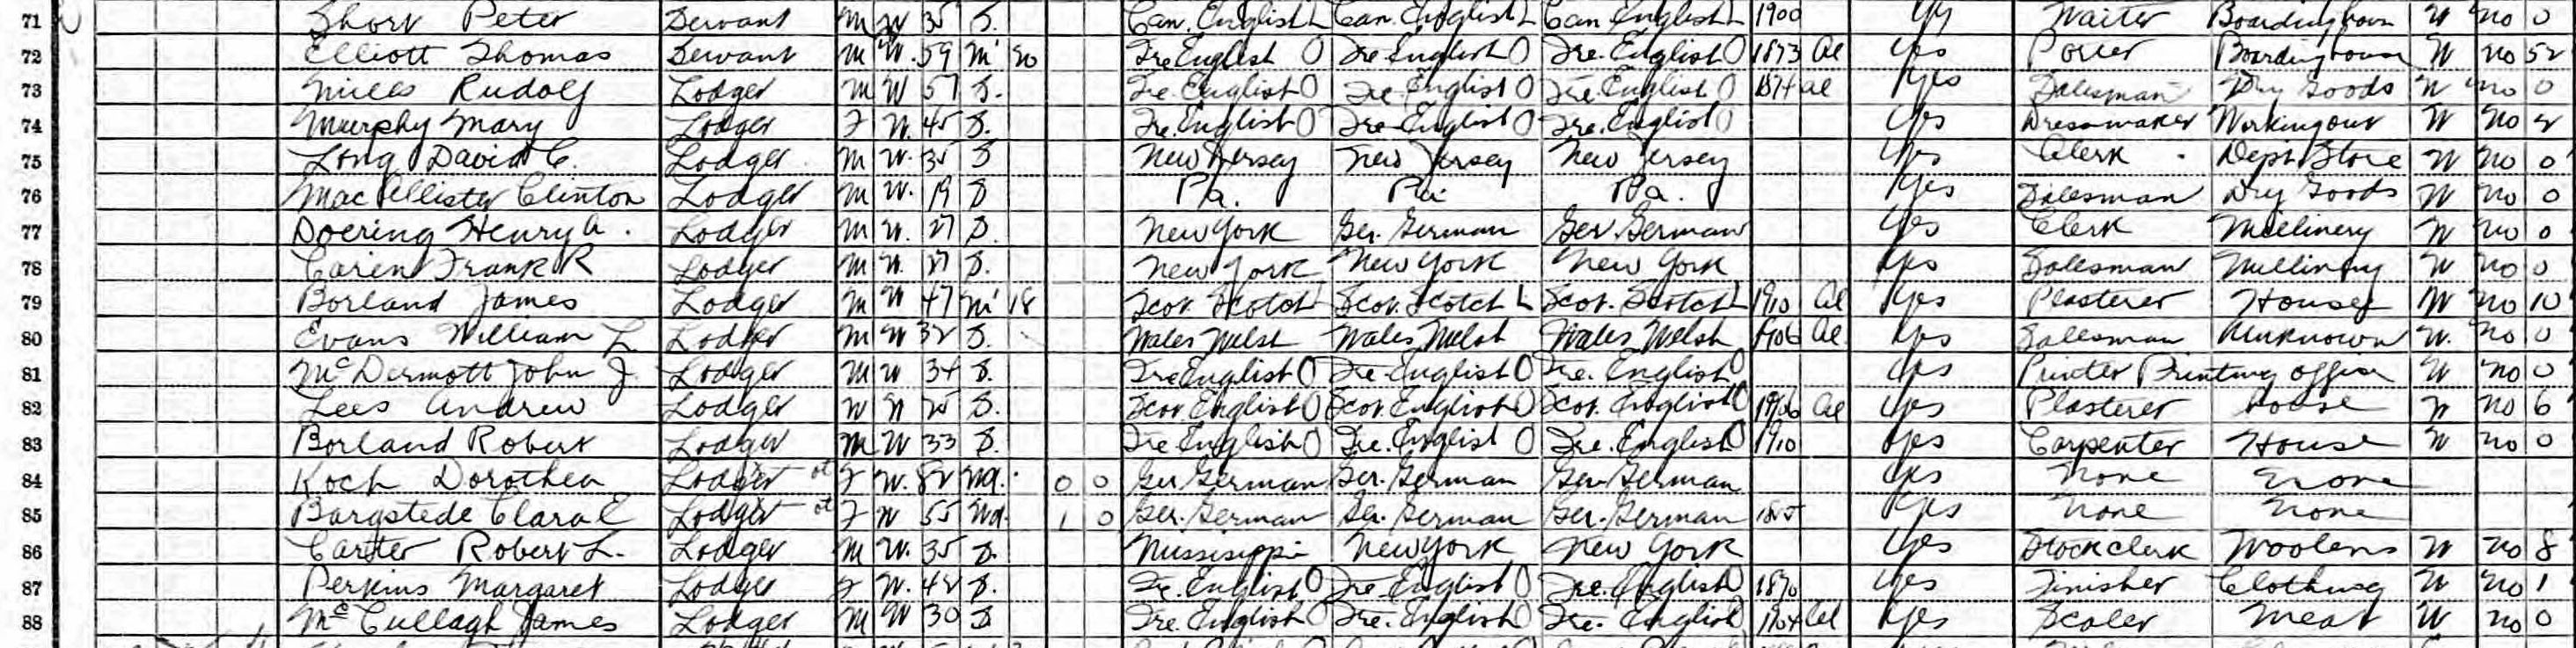 71 Short Peter Servant M W 35 S. Can. English Can. English Can English 1900 Yes Waiter Boardinghouse W no 0
72 Elliott Thomas Servant M W. 59 M1 20 Ire English O Ire. English O Ire. English O 1873 Al Yes Porter Boardinghouse W no 52
73 Rudolf Lodger M W 57 S. Ire. English O Ire English O Ire. English O 1874 al Yes Salesman Dry Goods W no 0
74 Murphy Mary Lodger F W. 45 S. Ire. English O Ire English O Ire. English O Yes Dressmaker Workingout W No 2
75 Long David C. Lodger M W. 35 S New Jersey New Jersey New Jersey Yes Clerk Dept Store W no 0
76 MacAllister Clinton Lodger M W. 19 S Pa. Pa Pa. Yes Salesman Dry Goods W no 0
77 Doering Henry A. Lodger M W. 27 S. New York Ger. German Ger. German Yes Clerk Millinery W no 0
78 Frank R Lodger M W. S. New York New York New York Yes Salesman Millinery W no 0
79 Borland James Lodger M W 47 M1 18 Scot. Scotch Scot. Scotch Scot. Scotch 1910 Al Yes Plasterer House W no 10
80 Evans William L. Lodger M W 32 S. Wales Welsh Wales Welsh Wales Welsh 1906 Al Yes Salesman Unknown W. no 0
81 McDermott John J. Lodger M W 34 S. Ire English O Ire English O Ire. English O Yes Printer Printing office W no 0
82 Lees Andrew Lodger W 25 S. Scot English O Scot. English O Scot. English O 1906 Al Yes Plasterer House W no 6
83 Borland Robert Lodger M W 33 S. Ire English O Ire. English O Ire. English O 1910 Yes Carpenter House W no 0
84 Koch Dorothea Lodger F W. 82 Wd. 0 0 Ger German Ger. German Ger German Yes None None
85 Bargstede Clara E Lodger F W 55 Wd. 1 0 Ger. German Ger. German Ger. German Yes None None
86 Carter Robert L. Lodger M W. 35 S. Mississippi New York New York Yes Stock clerk Woolens W no 8
87 Perkins Margaret Lodger F W. 42 S. Ire. English O Ire English O Ire. English O 1870 Yes Finisher Clothing W no 1
88 McCullagh James Lodger M W 30 S Ire. English O Ire. English O Ire. English O 1904 Al Yes Scaler Meat W no 0